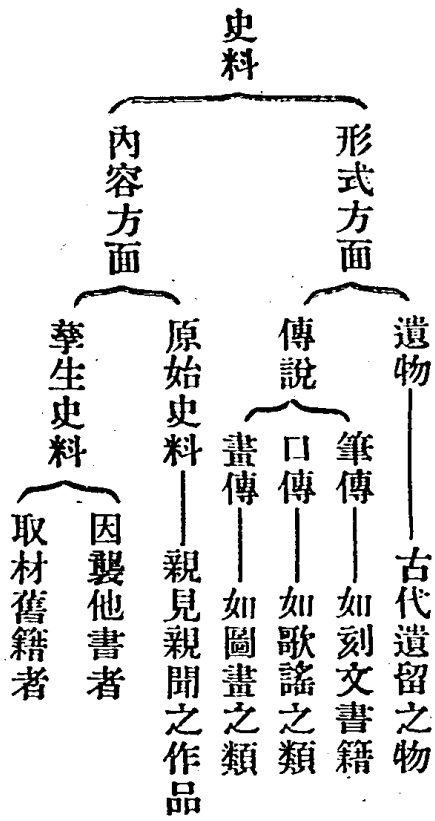 史料
形式方面
遺物
古代遺留之物
傳說
筆傳
如刻文書籍
口傳
如歌謠之類
畫傳
如圖畫之類
內容方面
原始史料
親見親聞之作品
孳生史料
因襲他書者
取材舊籍者